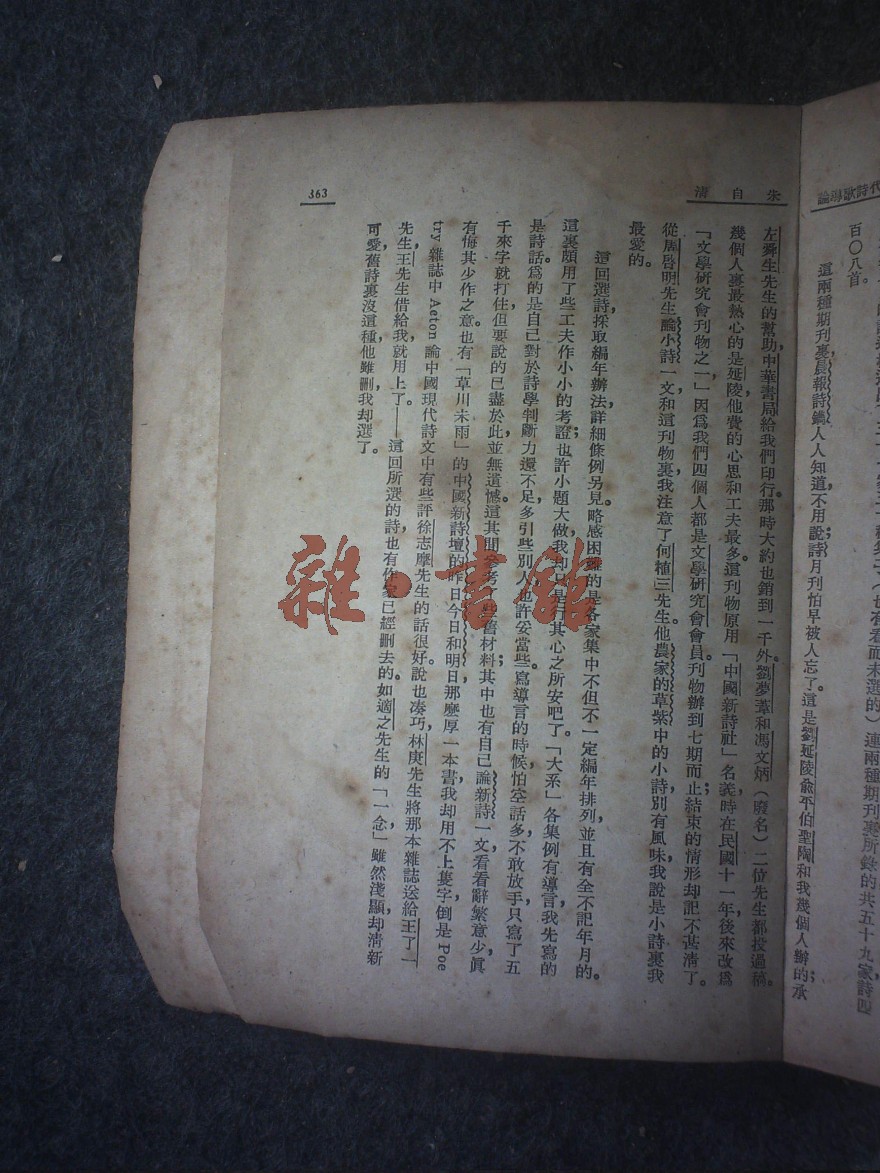 代詩歌導論
百〇八首。
這兩種期刊裏晨報詩鐫人人知道，不用說；詩月刊怕早被人忘了。這是劉延陵，俞平伯，聖陶和我幾個人辦的；承
朱自清
左舜生先生的幫助，中華書局給我們印行。那時大約也銷到一千外。劉夢葦和馮文炳（廢名）二位先生都投過稿。
幾個人裏最熱心的是延陵，他費的心思和工夫最多。這刊物原用「中國新詩社」名義，時在民國十一年，後來改爲
「文學研究會刊物之一」，因爲我們四個人都是文學研究會會員。刊物辦到七期而止；結束的情形却記不甚清了。
從周啓明先生論小詩一文和這刊物裏，我注意了何植三先生。他農家的草紫中的小詩，別有風味，我說是小詩裏我
最愛的。
這回選詩，採取編年辦法，詳細條例另見。略感困難的是各家集中不但不一定編年排列，並且有全不記年月的。
這裏頗用了些工夫作小小的考證；也許小題大做，我却只是行其心之所安吧了。「大系」各集例有導言，我先寫的
是詩話，爲的是自己對於詩學判斷力還不足，多引些別人，也許妥當些。寫導言的時候，怕空話多，不敢放手，只寫了五
千來字就打住。但要說的已盡於此，並無遺憾。這其間參考了些舊材料；其中也有自己論新詩一文，看看辭繁意少，眞
有悔其少作之意。也有「草川未雨」的中國新詩壇的昨日今日和明日，那麼厚一本書，我却用不上隻字。倒是 Poe
try 雜誌中 Acton 論中國現代詩文中有些評徐志摩先生的話很好。說也湊巧，林庚先生將那本雜誌送給王了一
先生，王先生借給我，就用上了。——這回所選的詩，也有作家已經刪去的。如適之先生的「一念」，雖然淺顯，却清新
可愛，舊詩裏沒這種，他雖刪，我却選了。
363
雜·書館